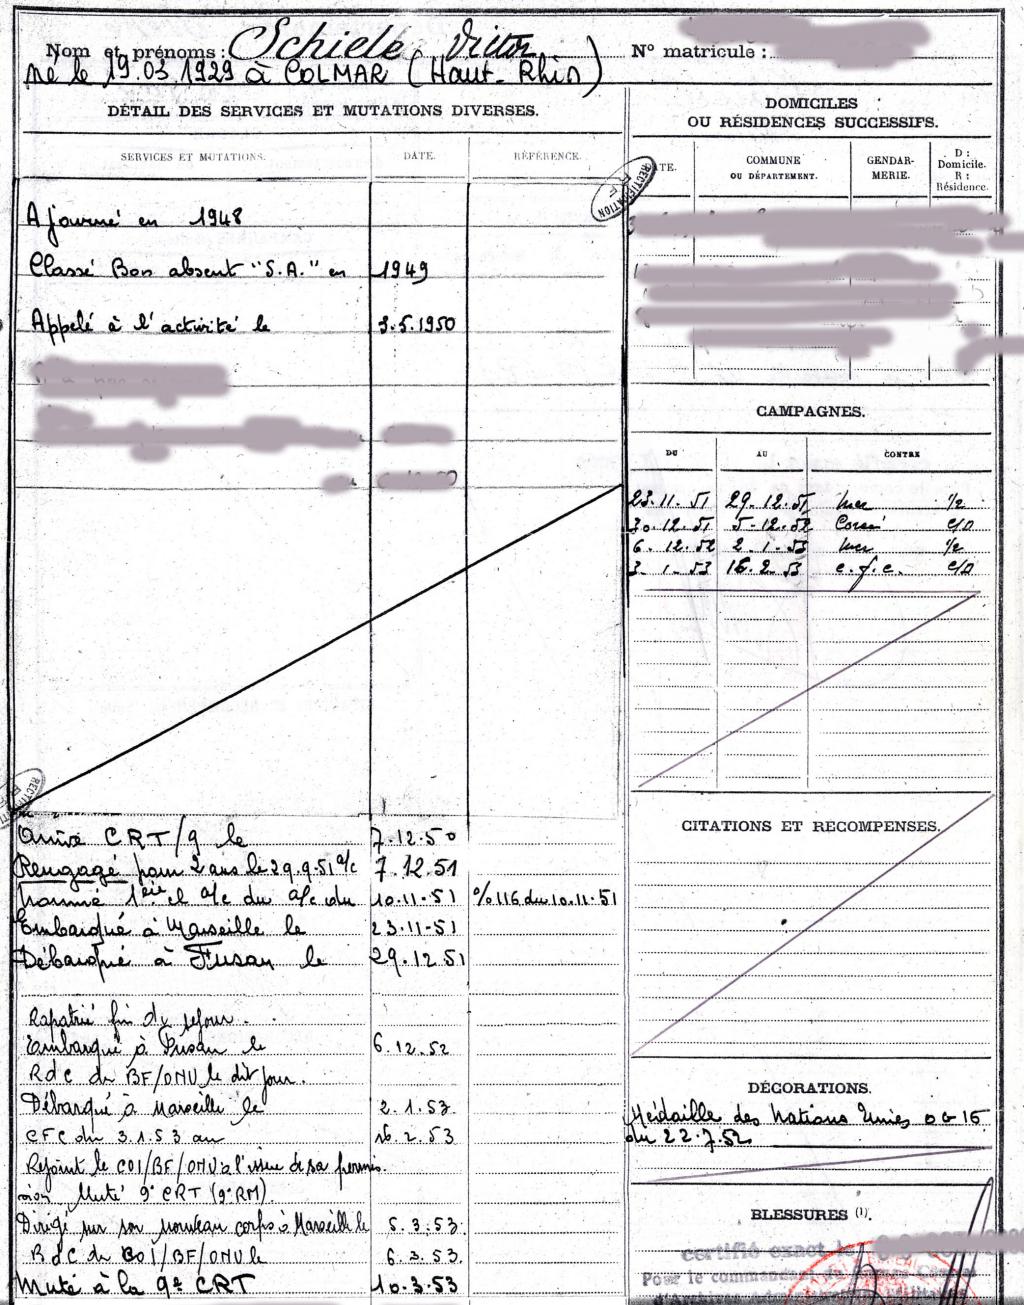 Nom et prénoms : Schiele Victor
Né le 19.03.1929 à COLMAR (Haut-Rhin)
N° matricule :
DÉTAIL DES SERVICES ET MUTATIONS DIVERSES.
SERVICES ET MUTATIONS. DATE. RÉFÉRENCE.
Ajourné en 1948
Classé Bon absent "S.A." en 1949
Appelé à l'activité le 3.5.1950
Arrivé CRT/9 le 7.12.50
Rengagé pour 2 ans le 29.9.51 a/c 7.12.51
Nommé 1ère cl a/c du a/c du 10.11.51 %116 du 10.11.51
Embarqué à Marseille le 23.11.51
Débarqué à Fusan le 29.12.51
Rapatrié fin de séjour.
Embarqué à Fusan le 6.12.52
RdC du BF/ONU le dit jour.
Débarqué à Marseille le 2.1.53
CFC du 3.1.53 au 16.2.53
Rejoint le COI/BF/ONU à l'issue de sa permis-
sion Muté 9e CRT (9e RM)
Dirigé sur son nouveau corps à Marseille le 5.3.53
RdC du COI/BF/ONU le 6.3.53.
Muté à la 9e CRT 10.3.53
RECTIFICATION
DOMICILES
OU RÉSIDENCES SUCCESSIFS.
COMMUNE
OU DÉPARTEMENT.
GENDAR-
MERIE.
D :
Domicile.
R :
Résidence.
CAMPAGNES.
DU AU CONTRE
23.11.51 29.12.51 Mer 1/2
30.12.51 5-12.52 Corée C/D
6.12.52 2.1.53 Mer 1/2
3.1.53 16.2.53 c.f.c. C/D
CITATIONS ET RECOMPENSES.
DÉCORATIONS.
Médaille des Nations Unies OG 15
du 22.7.52
BLESSURES (1).
certifié exact le
Pour le commandant du
d'Archives